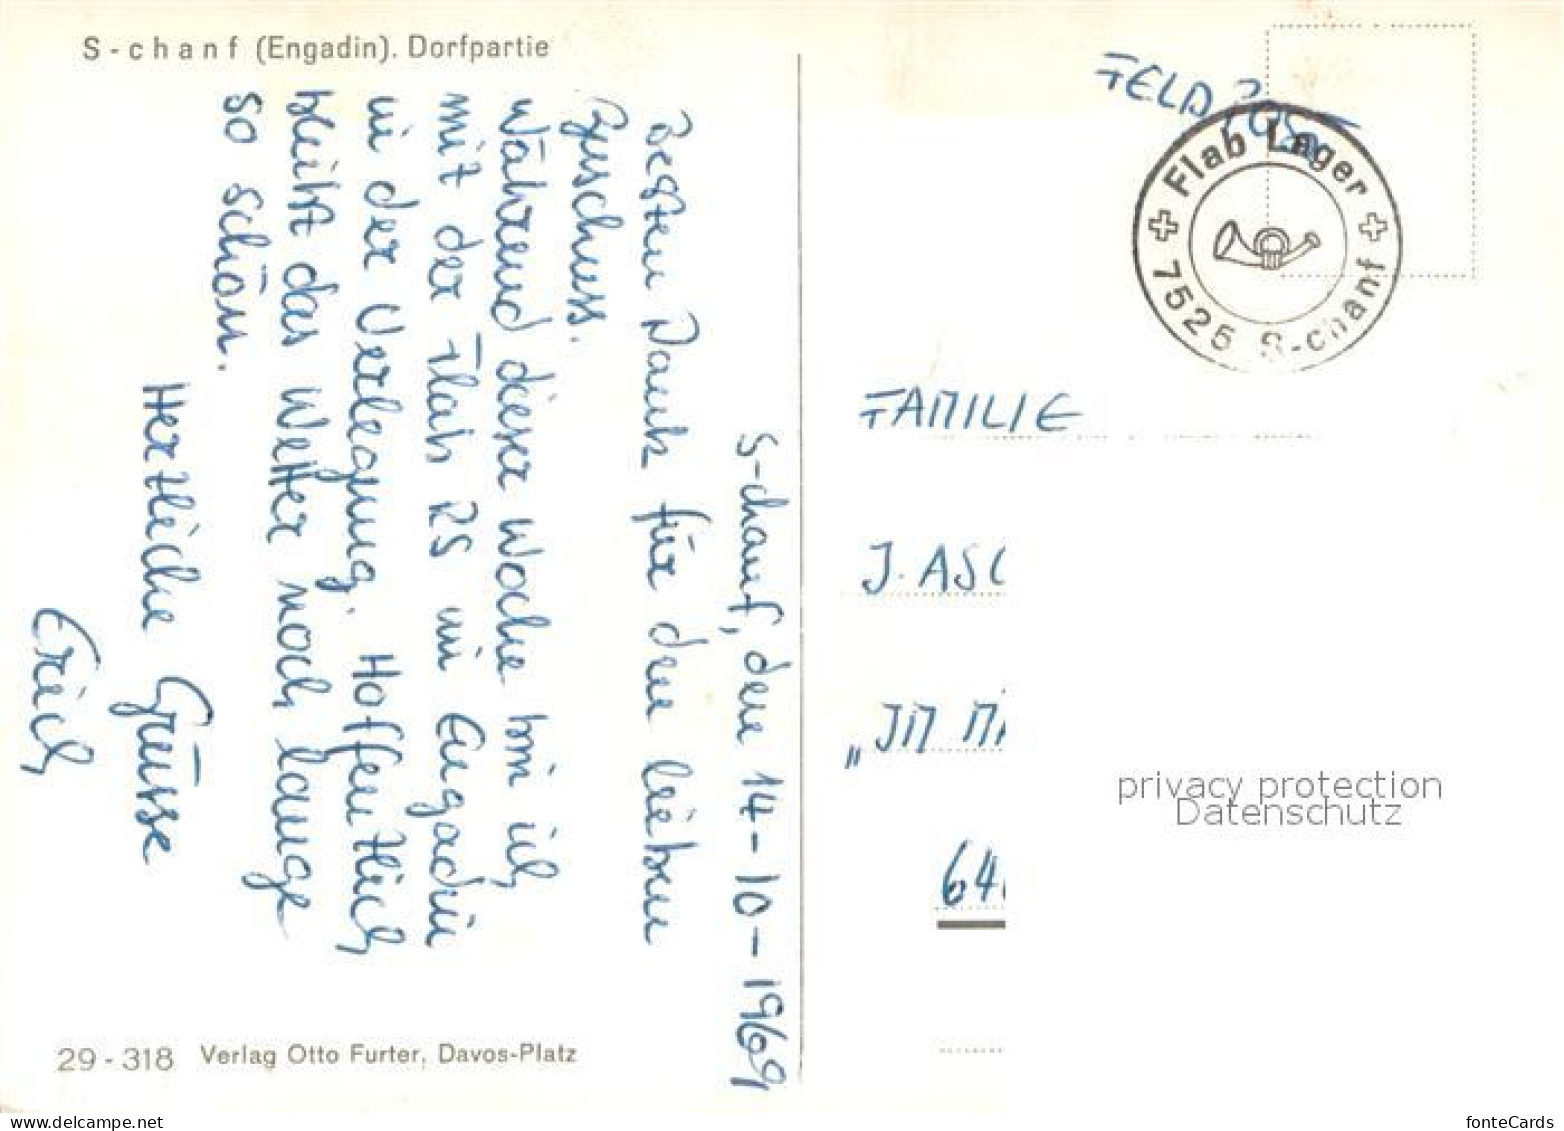 S-chanf (Engadin). Dorfpartie
S-chanf, den 14-10-1969
Besten Dank für den lieben
Zuschuss.
Während dieser Woche bin ich
mit der Flab RS im Engadin
in der Verlegung. Hoffentlich
bleibt das Wetter noch lange
so schön.
Herzliche Grüsse
Erich
29-318 Verlag Otto Furter, Davos-Platz
FELDPOST
Flab Lager
7525 S-chanf
FAMILIE
J. ASC
„IM
64
privacy protection
Datenschutz
www.delcampe.net
fonteCards